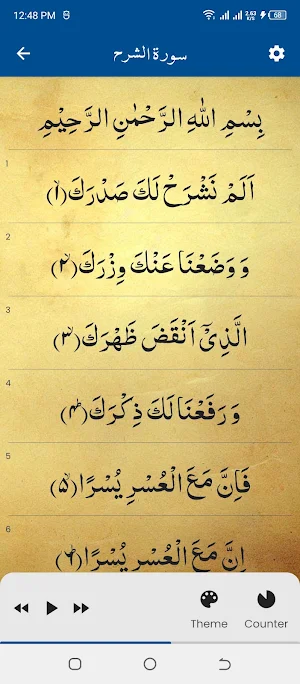 12:48 PM 2.63 K/s 68
سورة الشرح
بِسْمِ اللهِ الرَّحْمٰنِ الرَّحِيْمِ
1
اَلَمْ نَشْرَحْ لَكَ صَدْرَكَ(۱)
2
وَ وَضَعْنَا عَنْكَ وِزْرَكَ(۲)
3
الَّذِیْۤ اَنْقَضَ ظَهْرَكَ(۳)
4
وَ رَفَعْنَا لَكَ ذِكْرَكَ(۴)
5
فَاِنَّ مَعَ الْعُسْرِ یُسْرًا(۵)
6
اِنَّ مَعَ الْعُسْرِ یُسْرًا(۶)
Theme Counter